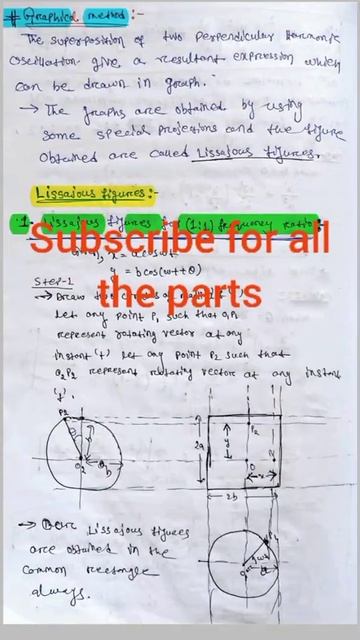 # Graphical method :-
The superposition of two perpendicular Harmonic
Oscillation give a resultant expression which
can be drawn in graph.
→ The graphs are obtained by using
some special projections and the figure
Obtained are called Lissajous figures.
Lissajous figures :-
1. Lissajous figures for (1:1) frequency ratio :
Subscribe for all
the parts
x = a cos wt
y = b cos (wt + θ)
Step-1
→ Draw
Let any point P1 such that O1P1
represent rotating vector at any
instant 't' let any point P2 such that
O2P2 represent rotating vector at any instant
't'.
P2
2a
y
P2
O
x
N
2b
P1
wt
→ Lissajous figures
are obtained in the
common rectangle
always.